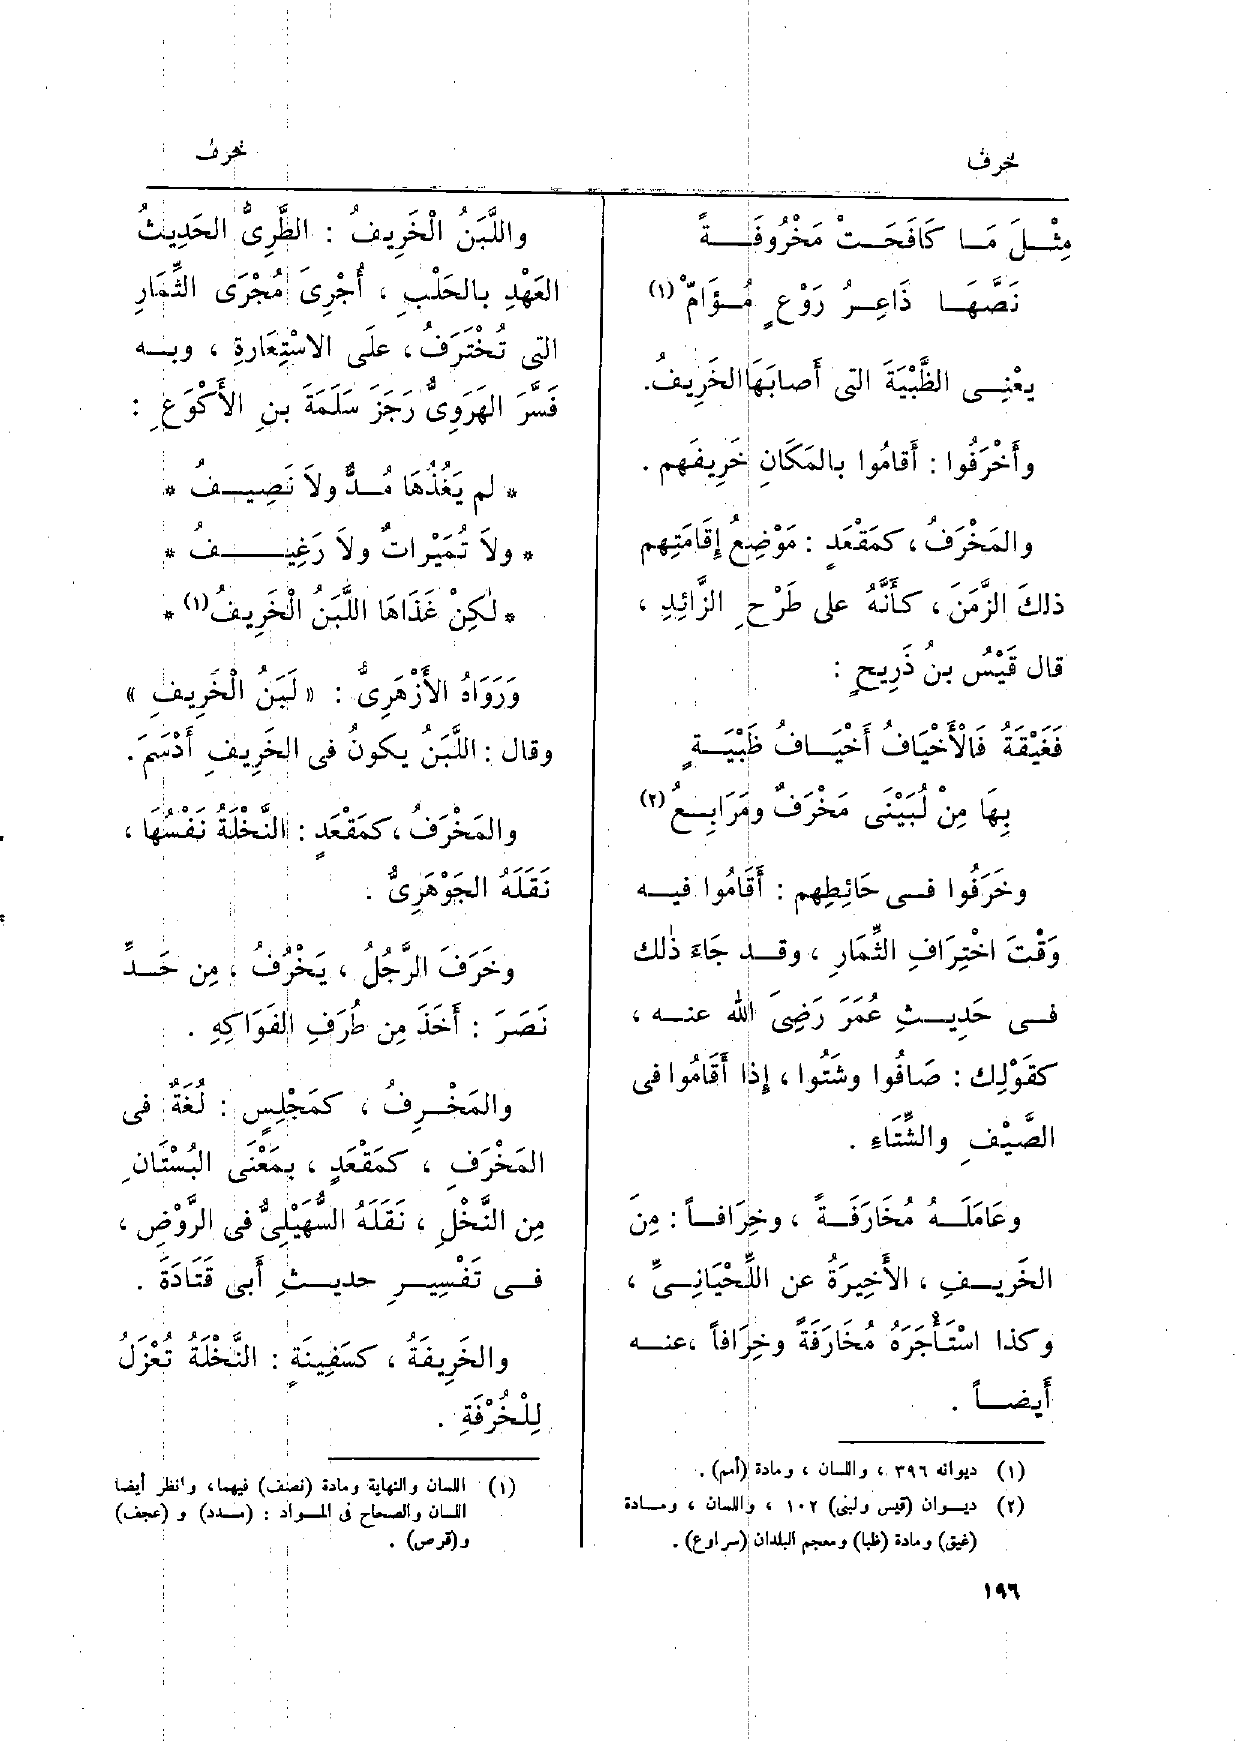 خرف
خرف
مِثْـلَ مَـا كَافَحَـتْ مَخْرُوفَـةً
نَصَّهَـا ذَاعِـرُ رَوْعٍ مُـؤَامّْ (١)
يعْنِـى الظَّبْيَةَ التى أصابَهَا الخَرِيفُ.
وأَخْرَفُوا : أَقامُوا بالمَكَانِ خَرِيفَهم .
والمَخْرَفُ، كمَقْعَدٍ : مَوْضِعُ إِقَامَتِهم
ذلكَ الزَّمَنَ، كأَنَّهُ على طَرْحِ الزَّائِدِ ،
قال قَيْسُ بنُ ذَرِيحٍ :
فَغَيْقَةُ فَالْأَخْيَافُ أَخْيَـافُ ظَبْيَـةٍ
بِهَا مِنْ لُبَيْنَى مَخْرَفٌ ومَرَابِـعُ (٢)
وخَرَفُوا فـى حَائِطِهم : أَقَامُوا فيـه
وَقْتَ اخْتِرَافِ الثِّمَارِ ، وقـد جَاءَ ذٰلك
فـى حَدِيـثِ عُمَرَ رَضِىَ اللهُ عنـه ،
كقَوْلِك : صَافُوا وشَتُوا ، إِذا أَقَامُوا فى
الصَّيْفِ والشِّتَاءِ .
وعَامَلَـهُ مُخَارَفَـةً ، وخِرَافـاً : مِنَ
الخَرِيـفِ ، الأَخِيرَةُ عن اللِّحْيَانِـىِّ ،
وكذا اسْتَأْجَرَهُ مُخَارَفَةً وخِرَافاً ،عنـه
أَيضـاً .
(١) ديوانه ٣٩٦ ، واللسان ، ومادة (أمم) .
(٢) ديـوان (قيس ولبنى) ١٠٢ ، واللسان ، ومـادة
(غيق) ومادة (ظبا) ومعجم البلدان (سراوع) .
واللَّبَنُ الْخَرِيفُ : الطَّرِىُّ الحَدِيثُ
العَهْدِ بالحَلْبِ ، أُجْرِىَ مُجْرَى الثِّمَارِ
التى تُخْتَرَفُ، علَى الاسْتِعَارةِ ، وبـه
فَسَّرَ الهَرَوِىُّ رَجَزَ سَلَمَةَ بنِ الأَكْوَعِ :
* لم يَغْذُهَا مُـدٌّ ولاَ نَصِيـفُ *
* ولاَ تُمَيْراتٌ ولاَ رَغِيـفُ *
*لٰكِنْ غَذَاهَا اللَّبَنُ الْخَرِيفُ(١) *
وَرَوَاهُ الأَزْهَرِىُّ : « لَبَنُ الْخَرِيفِ »
وقال : اللَّبَنُ يكونُ فى الخَرِيفِ أَدْسَمَ.
والمَخْرَفُ ،كمَقْعَدٍ : النَّخْلَةُ نَفْسُهَا ،
نَقَلَهُ الجَوْهَرِىُّ .
وخَرَفَ الرَّجُلُ ، يَخْرُفُ ، مِن حَـدِّ
نَصَرَ : أَخَذَ مِن طُرَفِ الفَوَاكِهِ .
والمَخْـرِفُ ، كمَجْلِسٍ : لُغَةٌ فى
المَخْرَفِ ، كمَقْعَدٍ ، بمَعْنَى البُسْتَانِ
مِن النَّخْلِ ، نَقَلَهُ السُّهَيْلِىُّ فى الرَّوْضِ ،
فـى تَفْسِيـرِ حديـثِ أَبى قَتَادَةَ .
والخَرِيفَةُ ، كسَفِينَةٍ : النَّخْلَةُ تُعْزَلُ
لِلْخُرْفَةِ .
(١) اللسان والنهاية ومادة (نصف) فيهما، وانظر أيضا
اللسان والصحاح فى المـواد : (مـدد) و (عجف)
و(قرص) .
١٩٦